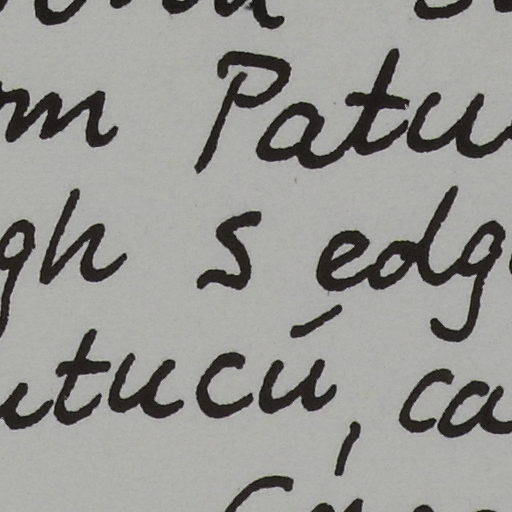 m Patu
gh s edg
utucú, ca